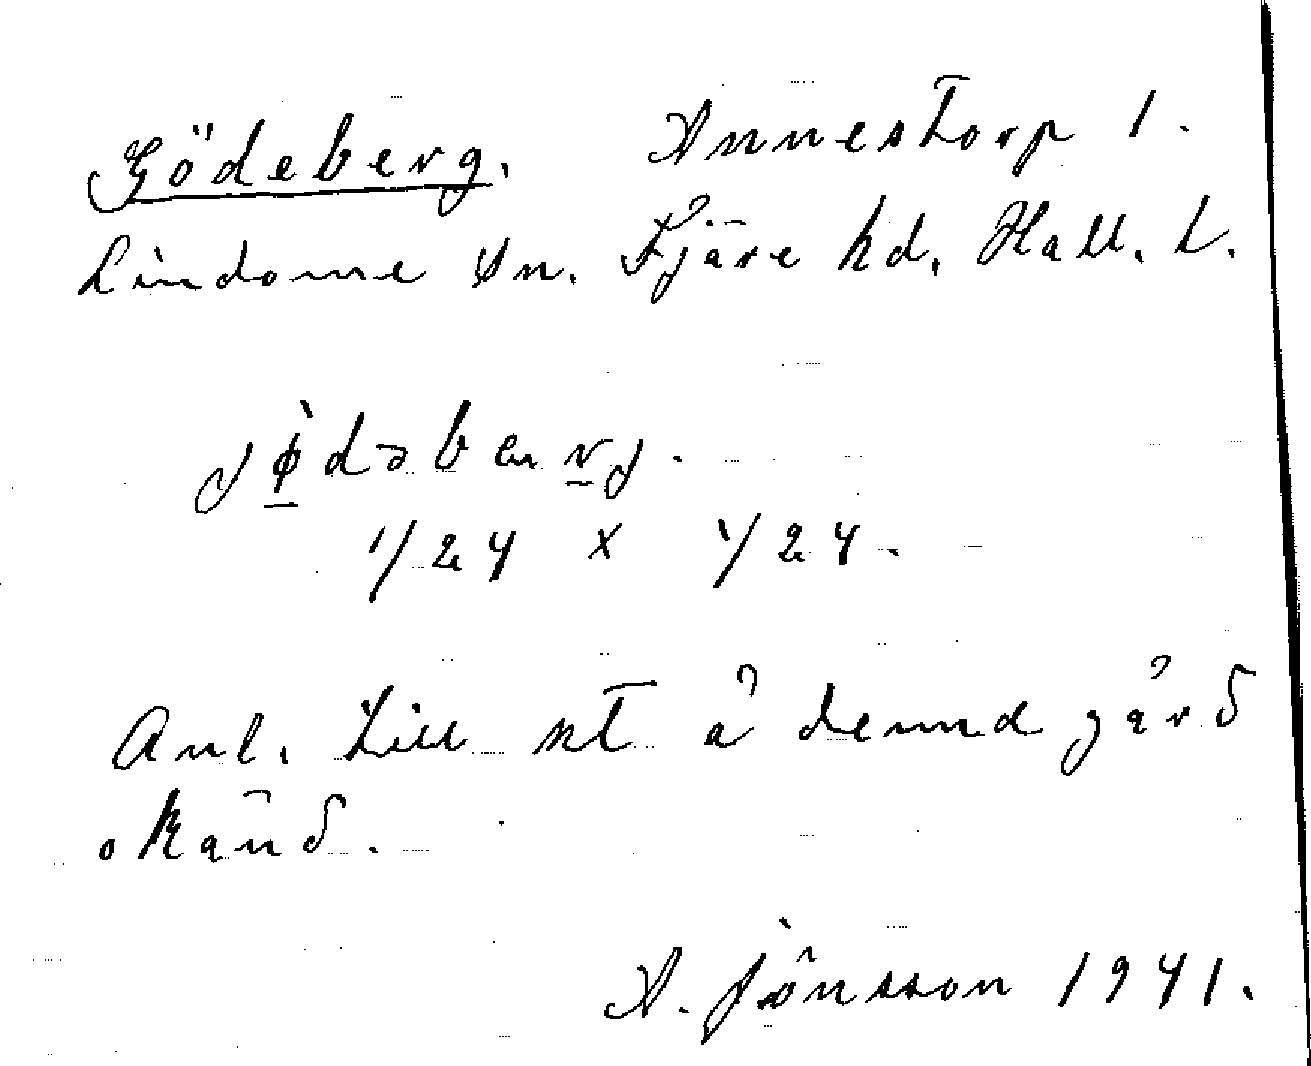 Gödeberg. Annestorp 1.
Lindome sn. Fjäre hd. Hall. l.
jø̀dəbærj.
1/24 x 1/24.
Anl. till nt å denna gård
okänd.
A. Jönsson 1941.